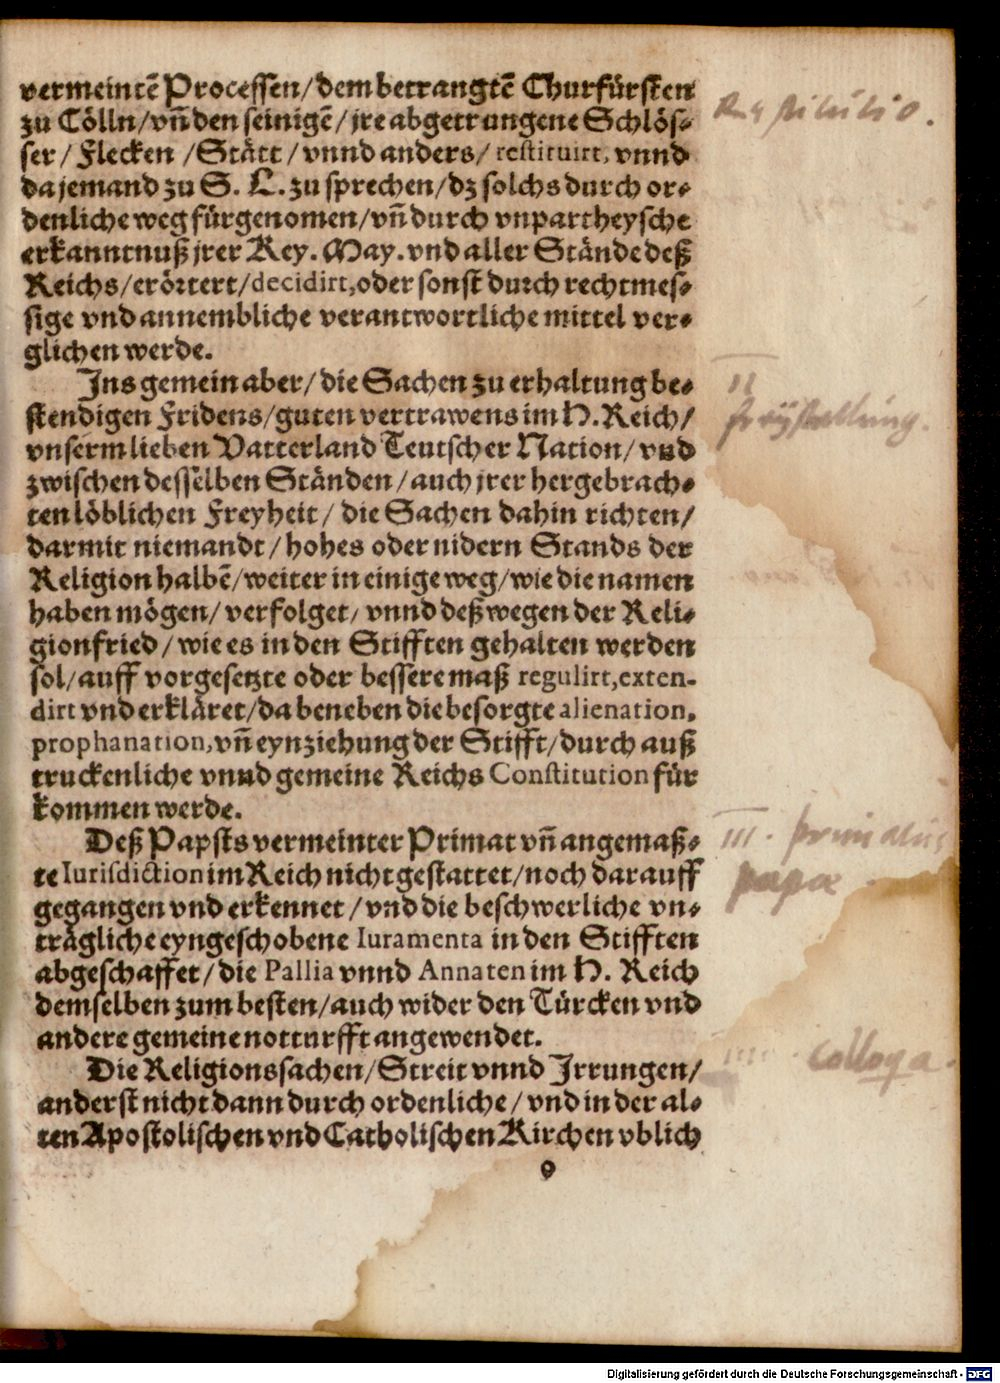 vermeintē Processen/dem betrangtē Churfürsten
zu Cölln/vn̄ den seinigē/jre abgetrungene Schlös-
ser/Flecken/Stätt/vnnd anders/restituirt, vnnd
da jemand zu S. L. zu sprechen/dz solchs durch or-
denliche weg fürgenomen/vn̄ durch vnpartheysche
erkanntnuß jrer Key. May. vnd aller Stände deß
Reichs/erörtert/decidirt, oder sonst durch rechtmes-
sige vnd annembliche verantwortliche mittel ver-
glichen werde.
Jns gemein aber/die Sachen zu erhaltung be-
stendigen Fridens/guten vertrawens im H. Reich/
vnserm lieben Vatterland Teutscher Nation/vnd
zwischen desselben Ständen/auch jrer hergebrach-
ten löblichen Freyheit/die Sachen dahin richten/
darmit niemandt/hohes oder nidern Stands der
Religion halbē/weiter in einige weg/wie die namen
haben mögen/verfolget/vnnd deßwegen der Reli-
gionfried/wie es in den Stifften gehalten werden
sol/auff vorgesetzte oder bessere maß regulirt, exten-
dirt vnd erkläret/da beneben die besorgte alienation,
prophanation, vn̄ eynziehung der Stifft/durch auß
truckenliche vnnd gemeine Reichs Constitution für
kommen werde.
Deß Papsts vermeinter Primat vn̄ angemaß-
te Iurisdiction im Reich nicht gestattet/noch darauff
gegangen vnd erkennet/vnd die beschwerliche vn-
trägliche eyngeschobene Iuramenta in den Stifften
abgeschaffet/die Pallia vnnd Annaten im H. Reich
demselben zum besten/auch wider den Türcken vnd
andere gemeine notturfft angewendet.
Die Religionssachen/Streit vnnd Jrrungen/
anderst nicht dann durch ordenliche/vnd in der al-
ten Apostolischen vnd Catholischen Kirchen vblich
Restitutio.
II
freÿstellung.
III. primatus
papae.
IIII. colloqa.
Digitalisierung gefördert durch die Deutsche Forschungsgemeinschaft - DFG